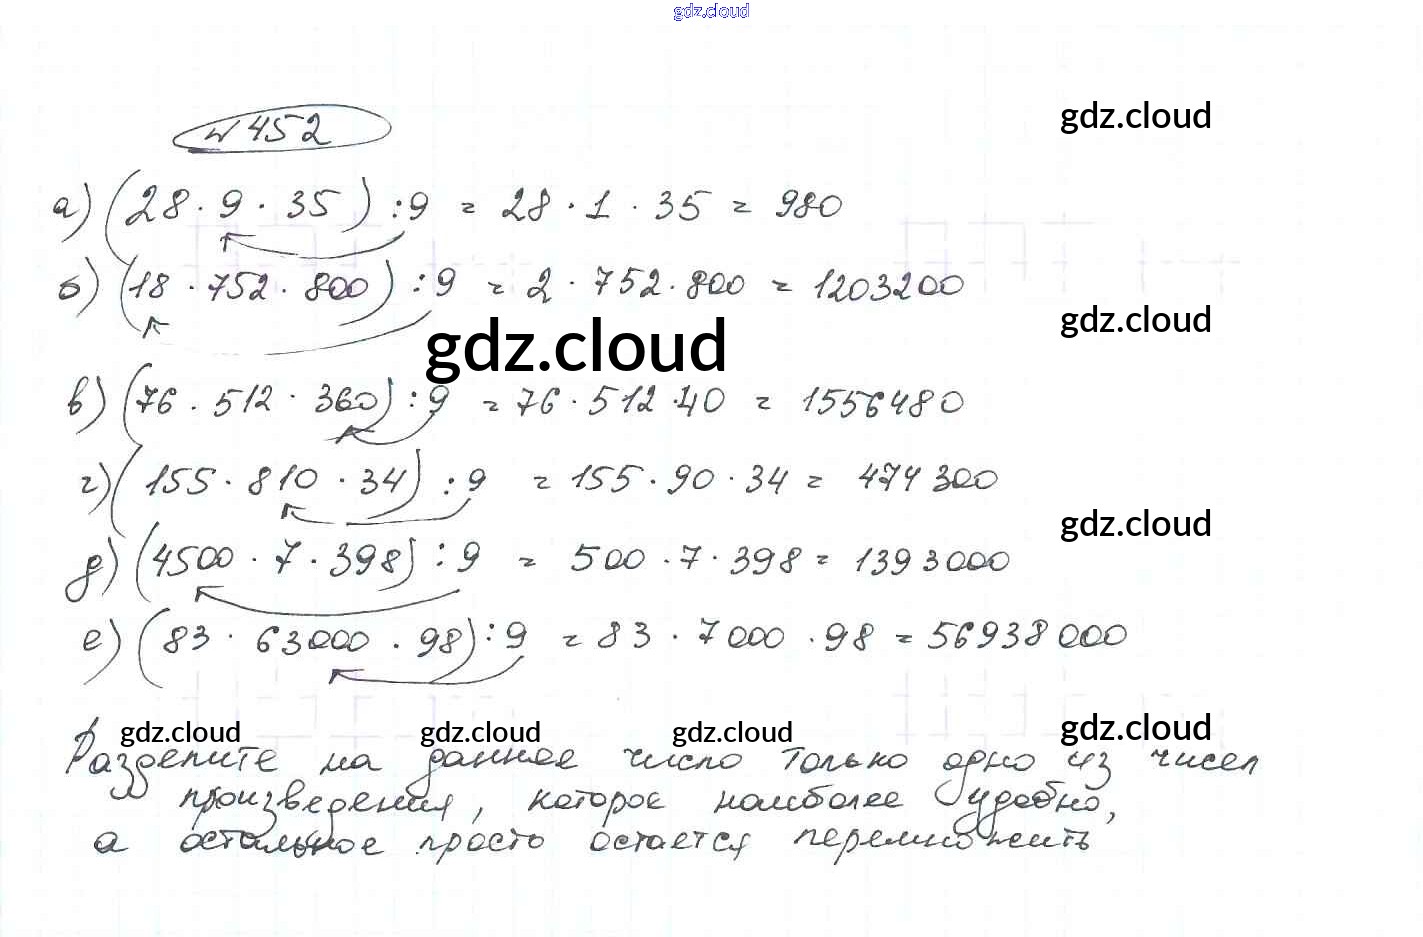 gdz.cloud
№ 452
gdz.cloud
а) (28 · 9 · 35) : 9 = 28 · 1 · 35 = 980
б) (18 · 752 · 800) : 9 = 2 · 752 · 800 = 1203200
gdz.cloud
gdz.cloud
в) (76 · 512 · 360) : 9 = 76 · 512 · 40 = 1556480
г) (155 · 810 · 34) : 9 = 155 · 90 · 34 = 474300
gdz.cloud
д) (4500 · 7 · 398) : 9 = 500 · 7 · 398 = 1393000
е) (83 · 63000 · 98) : 9 = 83 · 7000 · 98 = 56938000
gdz.cloud gdz.cloud gdz.cloud gdz.cloud
Разделите на данное число только одно из чисел
произведения, которое наиболее удобно,
а остальное просто остается перемножить